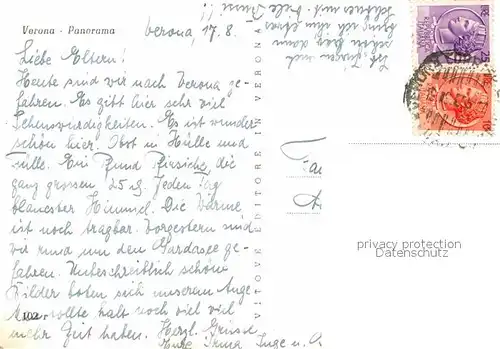 Verona - Panorama
Verona, 17.8.
Liebe Eltern!
Heute sind wir nach Verona ge-
fahren. Es gibt hier sehr viel
Sehenswürdigkeiten. Es ist wunder
schön hier. Obst in Hülle und
Fülle. Ein Pfund Pfirsiche, die
ganz grossen, 25 Jeden Tag
blauester Himmel. Die Wärme
ist noch tragbar. Vorgestern sind
wir rund um den Gardasee ge-
fahren. Unbeschreiblich schöne
Bilder boten sich unserem Auge
Man sollte halt noch viel viel
mehr Zeit haben. Herzl. Grüsse
Inge u.
102
VITOVE EDITORE IN VERONA
privacy protection
Datenschutz